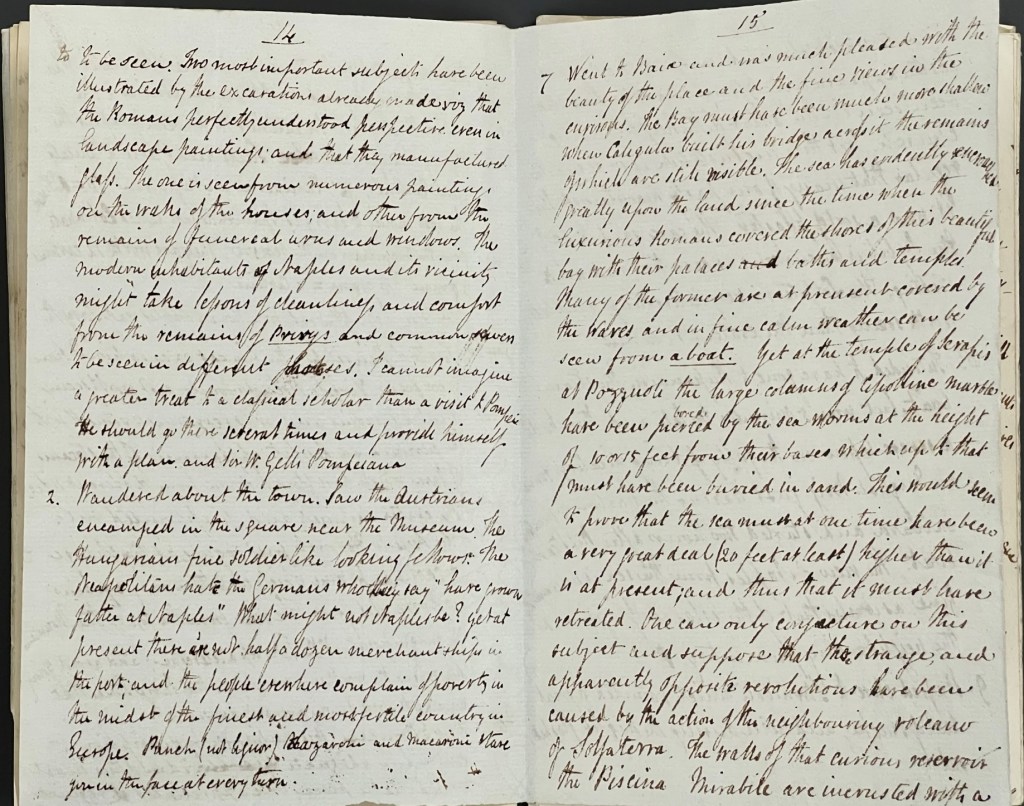 14
to be seen. Two most important subjects have been
illustrated by the excavations already made viz that
the Romans perfectly understood perspective even in
landscape paintings; and that they manufactured
glass. The one is seen from numerous paintings
on the walls of the houses; and other from the
remains of funereal urns and windows. The
modern inhabitants of Naples and its vicinity
might take lessons of cleanliness and comfort
from the remains of Privys and common sewers
to be seen in different houses. I cannot imagine
a greater treat to a classical scholar than a visit to Pompeii
He should go there several times and provide himself
with a plan. and Sir W. Gell's Pompeiana
2. Wandered about the town. Saw the Austrians
encamped in the square near the Museum. The
Hungarians fine soldierlike looking fellows. The
Neapolitans hate the Germans who they say "have grown
fatter at Naples". What might not Naples be? Yet at
present there are not half a dozen merchant ships in
the port. and the people everwhere complain of poverty in
the midst of the finest and most fertile country in
Europe. Punch (not liquor) Lazzaroni and macaroni stare
you in the face at every turn.
15
7 Went to Baiæ and was much pleased with the
beauty of the place and the fine views in the
environs. The Bay must have been much more shallow
when Caligula built his bridge across it the remains
of which are still visible. The sea has evidently
greatly upon the land since the time when the
luxurious Romans covered the shores of this beautiful
bay with their palaces and baths and temples
Many of the former are at prensent covered by
the waves, and in fine calm weather can be
seen from a boat. Yet at the temple of Serapis
at Pozzuoli the large columns of Cipoline marble
have been pierced bored by the sea worms at the height
of 10 or 15 feet from their bases which up to that
must have been buried in sand. This would seem
to prove that the sea must at one time have been
a very great deal (20 feet at least) higher than it
is at present; and thus that it must have
retreated. One can only conjecture on this
subject and suppose that the strange, and
apparently opposite revolutions have been
caused by the action of the neighbouring volcano
of Solfaterra. The walls of that curious reservoir
the Piscina Mirabile are incrusted with a